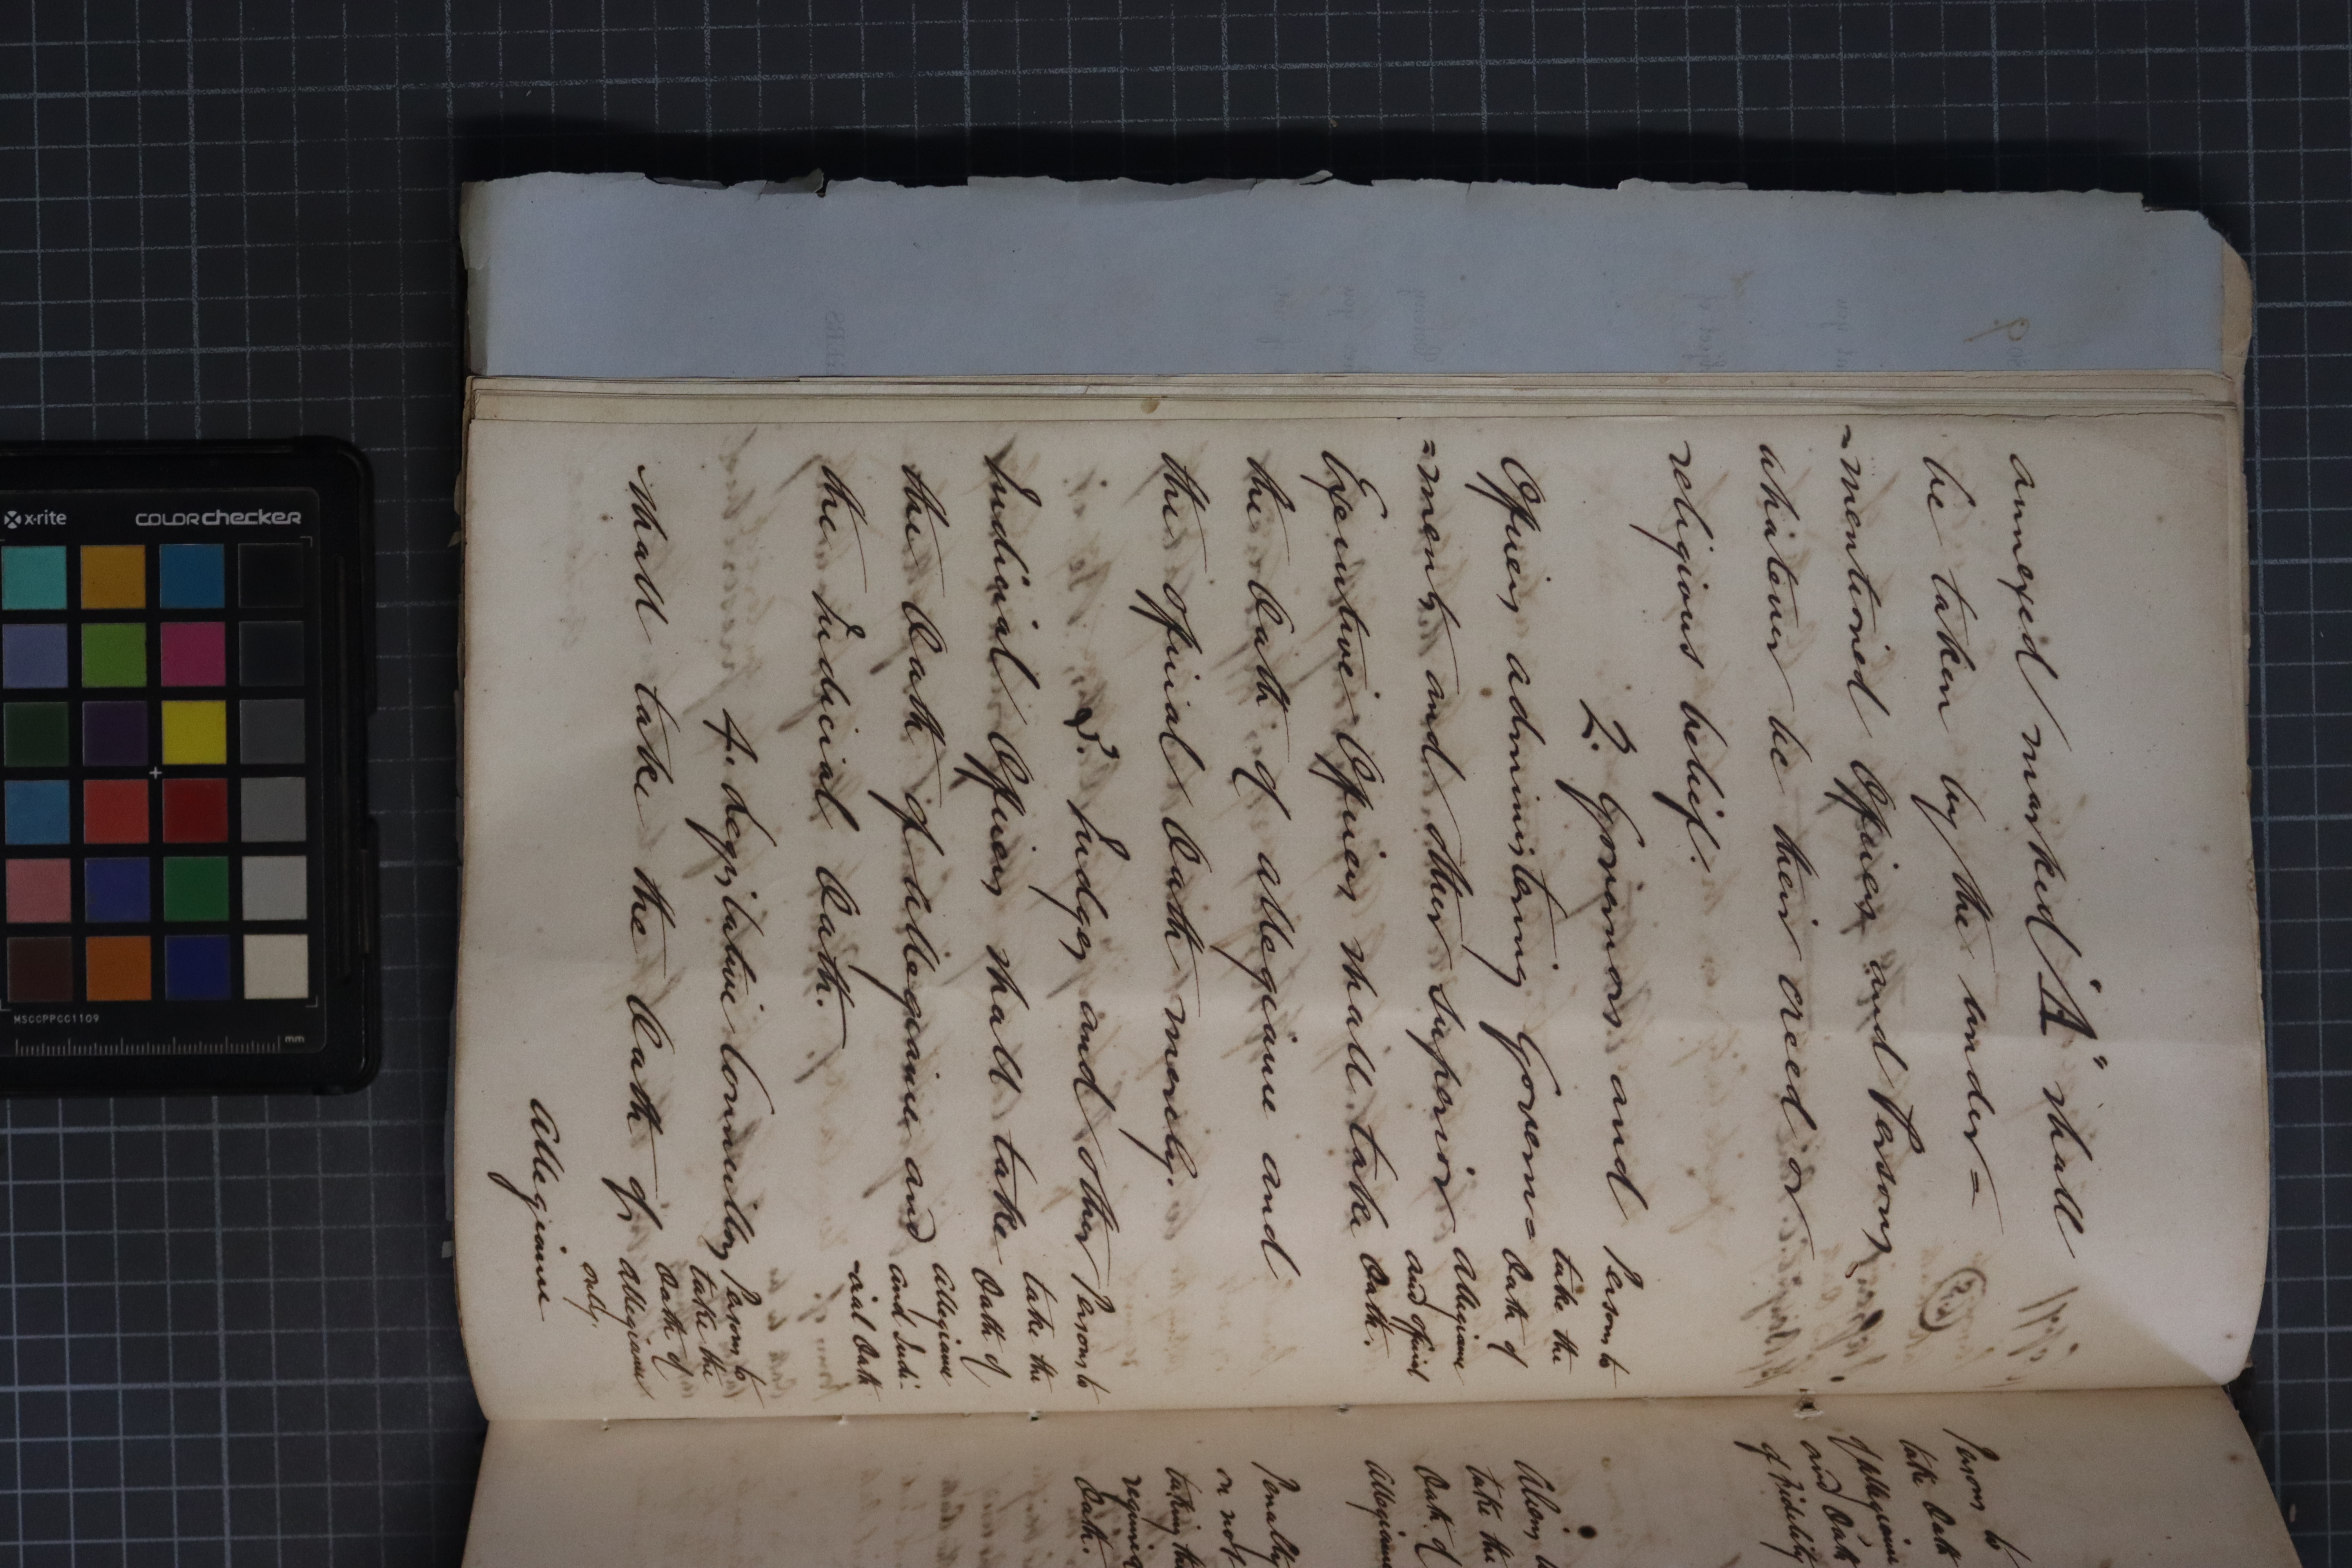 annexed marked "A" shall
be taken by the under=
=mentioned Officers and Persons
whatever be their creed or
religious belief.
2. Governors and
Officers administering Govern=
=ments and other superior
Executive Officers shall take
the Oath of allegiance and
the official Oath merely.
3. Judges and other
Judicial Officers shall take
the Oath of allegiance and
the Judicial Oath.
4. Legislative Councillors
shall take the Oath of
Allegiance
Persons to
take the
Oath of
Allegiance
and official
Oath.
Persons to
take the
Oath of
Allegiance
and Judi-
-cial Oath
Persons to
take the
Oath of
Allegiance
only.
Persons to
take Oath
of Allegiance
and Oath
of Fidelity
Aliens
take the
Oath of
Allegiance
Penalty
on not
taking the
required
Oath.
x-rite
COLORchecker
MSCCPPCC1109
mm